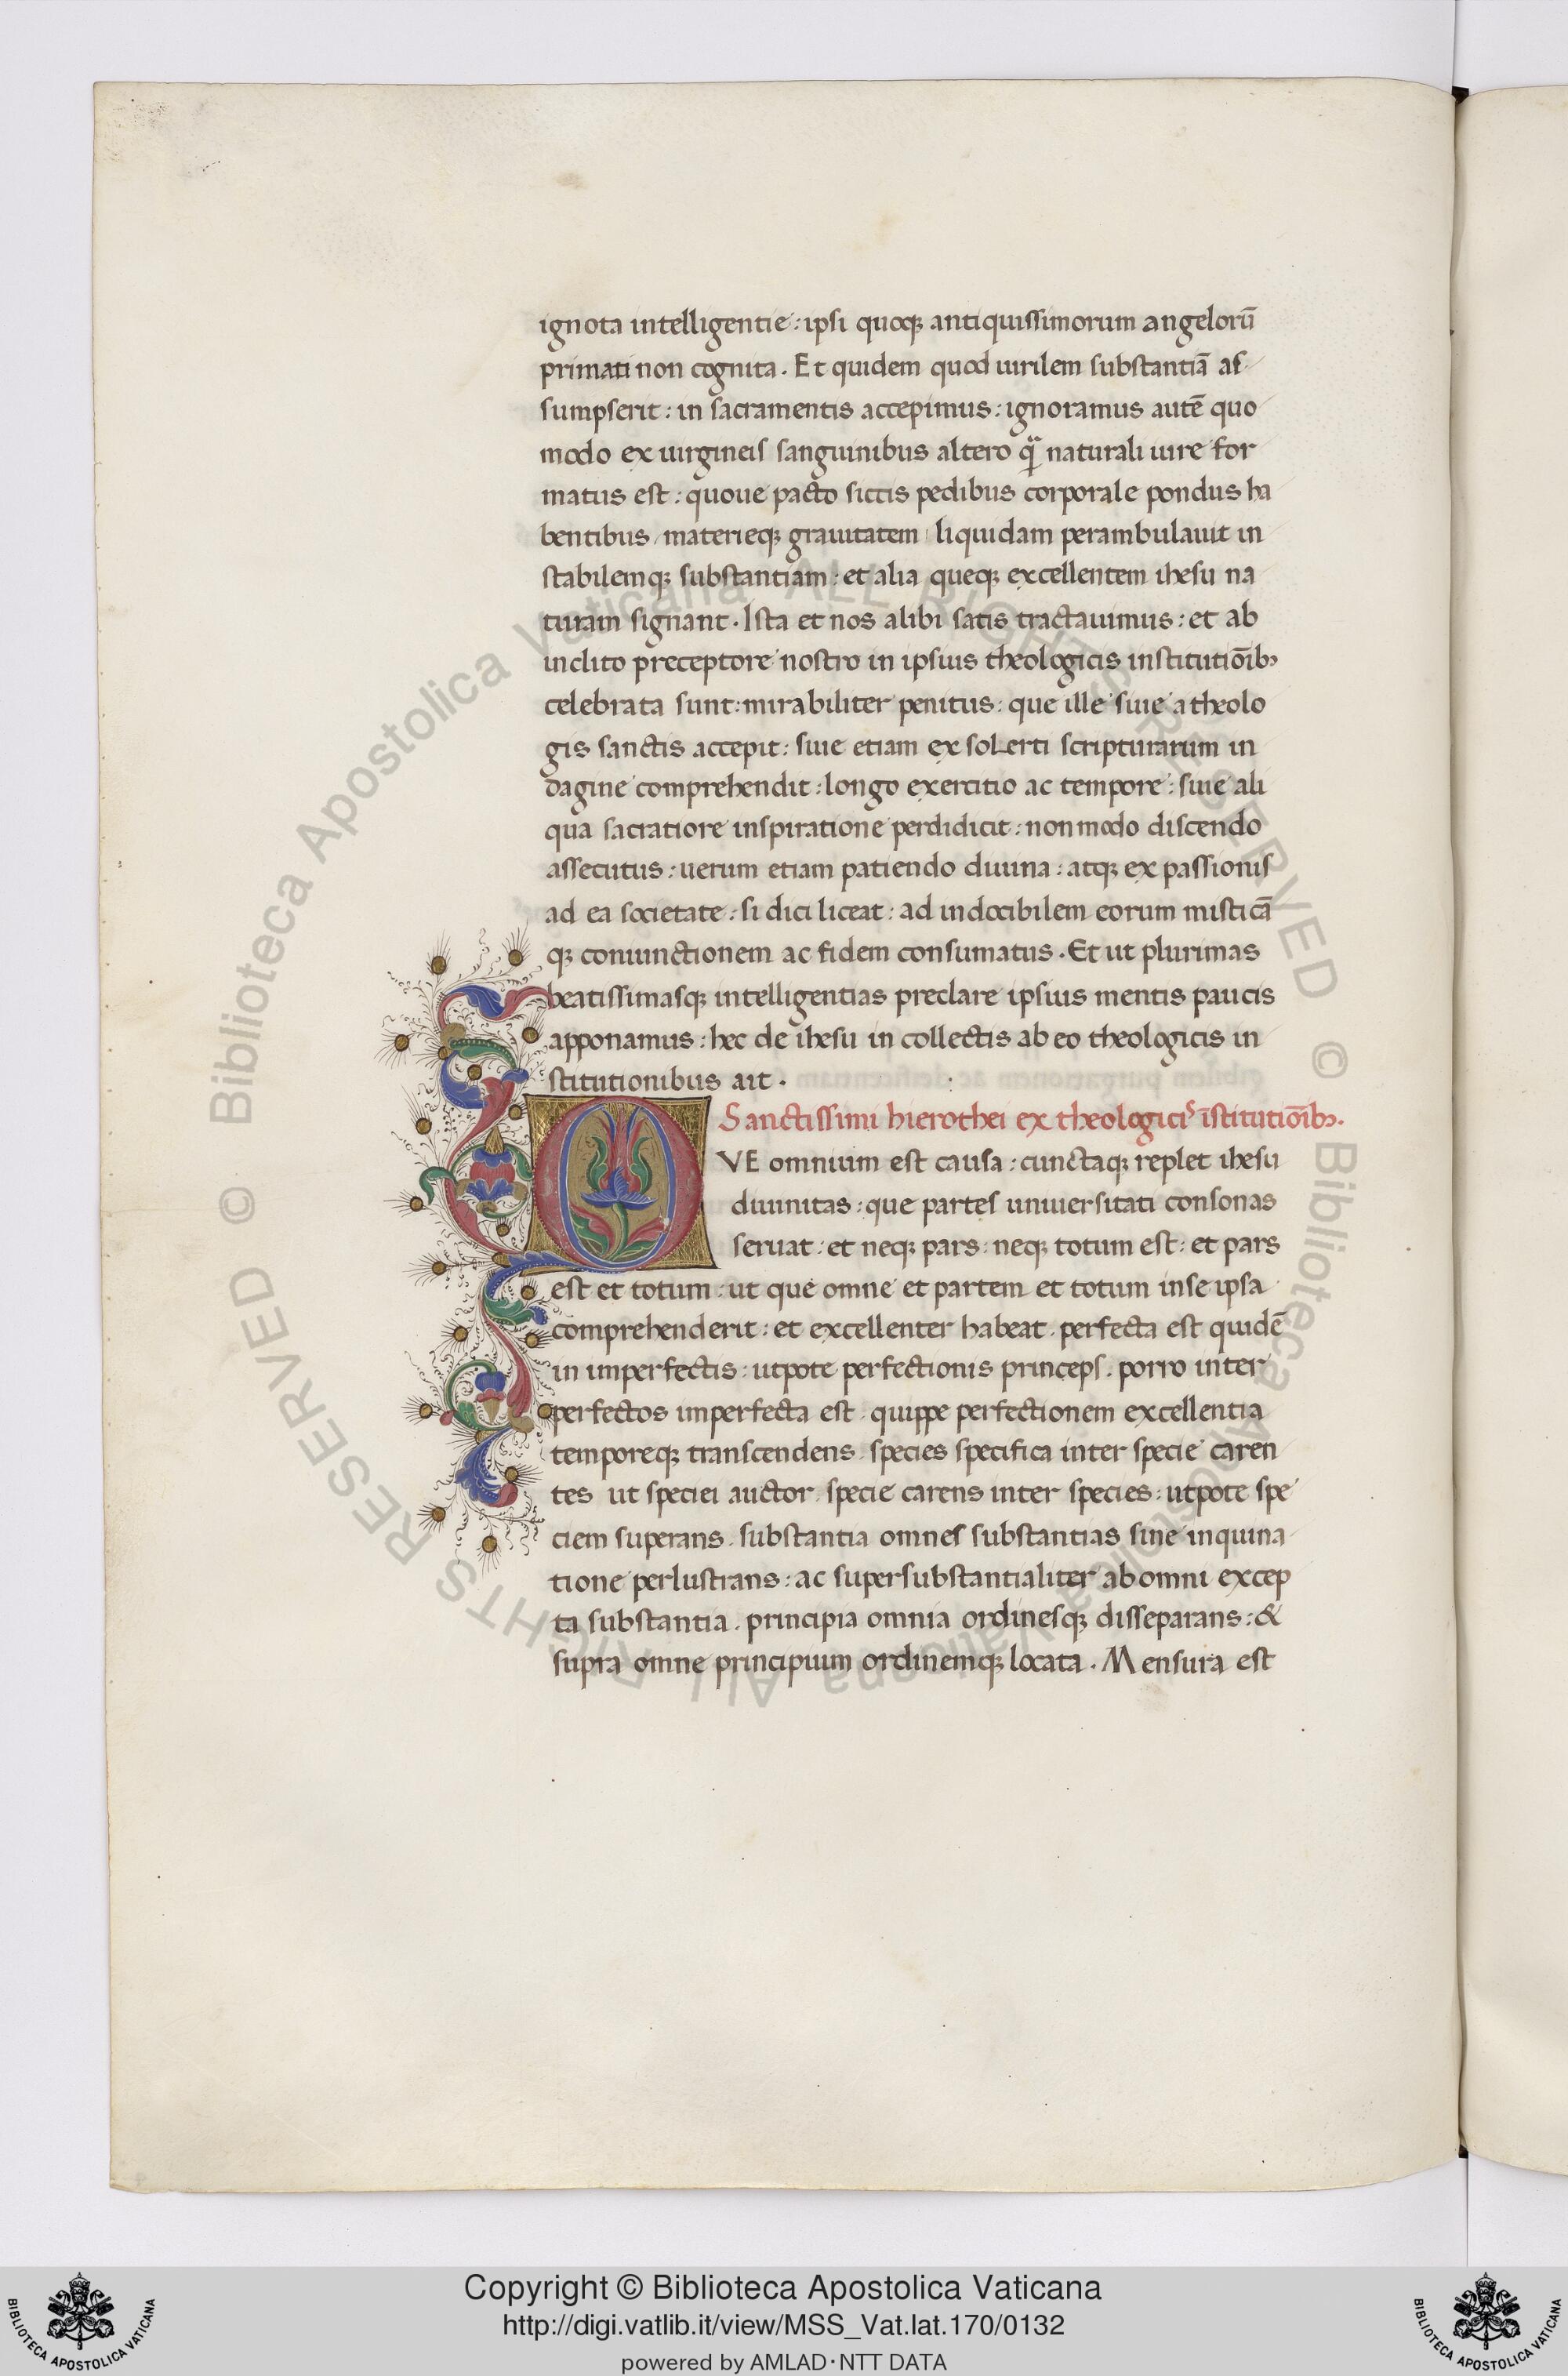 ignota intelligentie: ipsi quoqꝫ antiquissimorum angelorū
primati non cognita. Et quidem quod uirilem substantiā as
sumpserit: in sacramentis accepimus: ignoramus autē quo
modo ex uirgineis sanguinibus altero q̄ naturali uire for
matus est: quoue pacto siccis pedibus corporale pondus ha
bentibus, materieqꝫ grauitatem, liquidam perambulauit in
stabilemqꝫ substantiam: et alia queqꝫ excellentem ihesu na
turam signant. Ista et nos alibi satis tractauimus: et ab
inclito preceptore nostro in ipsius theologicis institutiōibꝫ
celebrata sunt: mirabiliter penitus: que ille siue a theolo
gis sanctis accepit: siue etiam ex solerti scripturarum in
dagine comprehendit: longo exercitio ac tempore: siue ali
qua sacratiore inspiratione perdidicit: non modo discendo
assecutus: uerum etiam patiendo diuina: atqꝫ ex passionis
ad ea societate: si dici liceat: ad indocibilem eorum misticā
qꝫ coniunctionem ac fidem consumatus. Et ut plurimas
beatissimasqꝫ intelligentias preclare ipsius mentis paucis
apponamus: hec de ihesu in collectis ab eo theologicis in
stitutionibus ait.
Sanctissimi hierothei ex theologicis īstitutiōibꝫ.
QVE omnium est causa: cunctaqꝫ replet ihesu
diuinitas: que partes uniuersitati consonas
seruat: et neqꝫ pars: neqꝫ totum est: et pars
est et totum: ut que omne et partem et totum inse ipsa
comprehenderit: et excellenter habeat. perfecta est quidē
in imperfectis: utpote perfectionis princeps. porro inter
perfectos imperfecta est. quippe perfectionem excellentia
temporeqꝫ transcendens. species specifica inter specie caren
tes ut speciei auctor. specie carens inter species: utpote spe
ciem superans. substantia omnes substantias sine inquina
tione perlustrans: ac supersubstantialiter ab omni excep
ta substantia. principia omnia ordinesqꝫ disseparans: &
supra omne principium ordinemqꝫ locata. Mensura est
© Biblioteca Apostolica Vaticana ALL RIGHTS RESERVED © Biblioteca Apostolica Vaticana ALL RIGHTS RESERVED
Copyright © Biblioteca Apostolica Vaticana
http://digi.vatlib.it/view/MSS_Vat.lat.170/0132
powered by AMLAD·NTT DATA
BIBLIOTECA APOSTOLICA VATICANA
BIBLIOTECA APOSTOLICA VATICANA